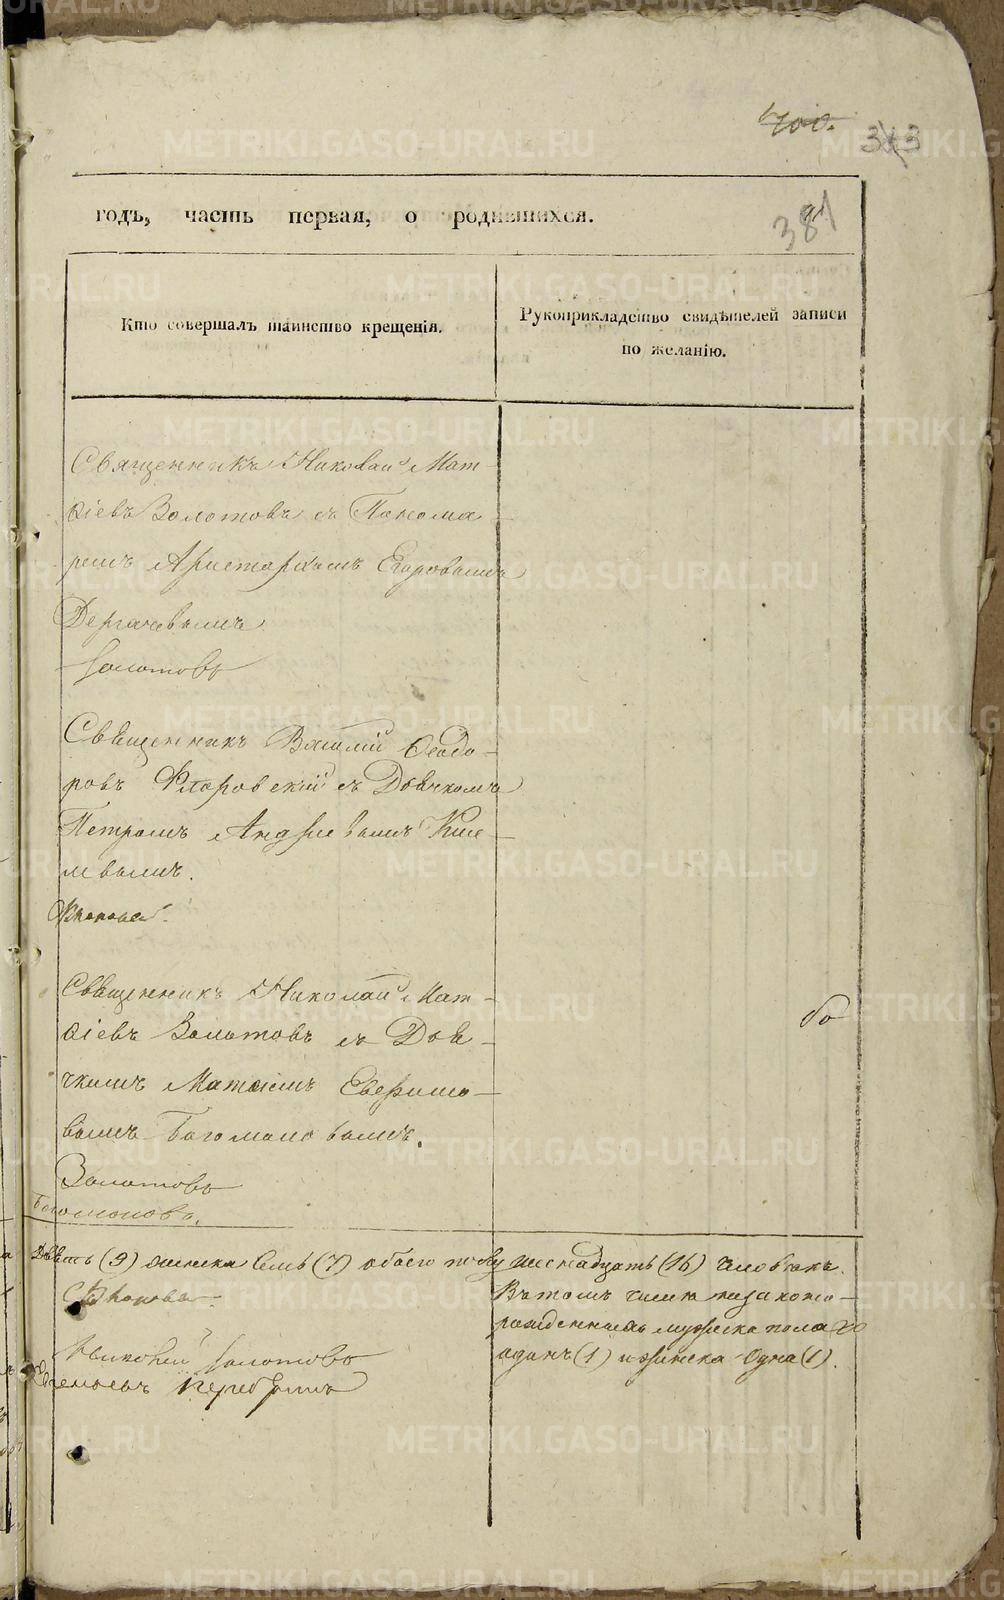 400.
381
годъ, часть первая, о родившихся.
Кто совершалъ таинство крещенія.
Рукоприкладство свидѣтелей записи
по желанію.
Священникъ Николай Мат-
ѳіевъ Золотовъ съ Понома-
ремъ Аристархомъ Егоровымъ
Дергачевымъ
Золотовъ
Священникъ Василій Ѳеодо-
ровъ Флоровскій съ Дьячкомъ
Петромъ Андреевымъ
Священникъ Николай Мат-
ѳіевъ Золотовъ съ Дья-
чкомъ Евфимо-
вымъ Богомоловымъ.
Золотовъ
Богомоловъ.
Девять (9) женска семь (7) обоего полу шестнадцать (16) человѣкъ.
Въ томъ числѣ незаконо-
рожденныхъ мужска пола
одинъ (1) и женска одна (1).
Николай Золотовъ
METRIKI.GASO-URAL.RU